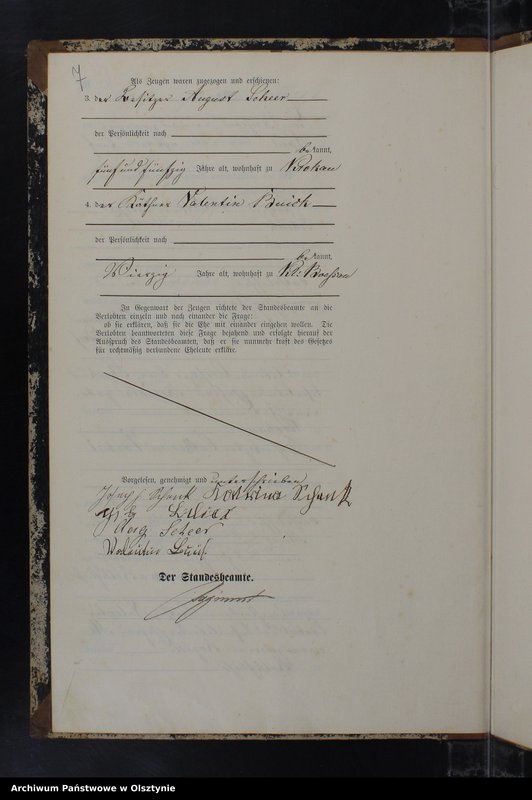 7
Als Zeugen waren zugezogen und erschienen:
3. der Besitzer August Scheer
der Persönlichkeit nach
bekannt,
fünf und fünfzig Jahre alt, wohnhaft zu Krokau
4. der Käthner Valentin
der Persönlichkeit nach
bekannt,
Vierzig Jahre alt, wohnhaft zu Kl:
In Gegenwart der Zeugen richtete der Standesbeamte an die
Verlobten einzeln und nach einander die Frage:
ob sie erklären, daß sie die Ehe mit einander eingehen wollen. Die
Verlobten beantworteten diese Frage bejahend und erfolgte hierauf der
Ausspruch des Standesbeamten, daß er sie nunmehr kraft des Gesetzes
für rechtmäßig verbundene Eheleute erkläre.
Vorgelesen, genehmigt und unterschrieben
Joseph Schenk Schenk
Scheer
Valentin
Der Standesbeamte.
Archiwum Państwowe w Olsztynie